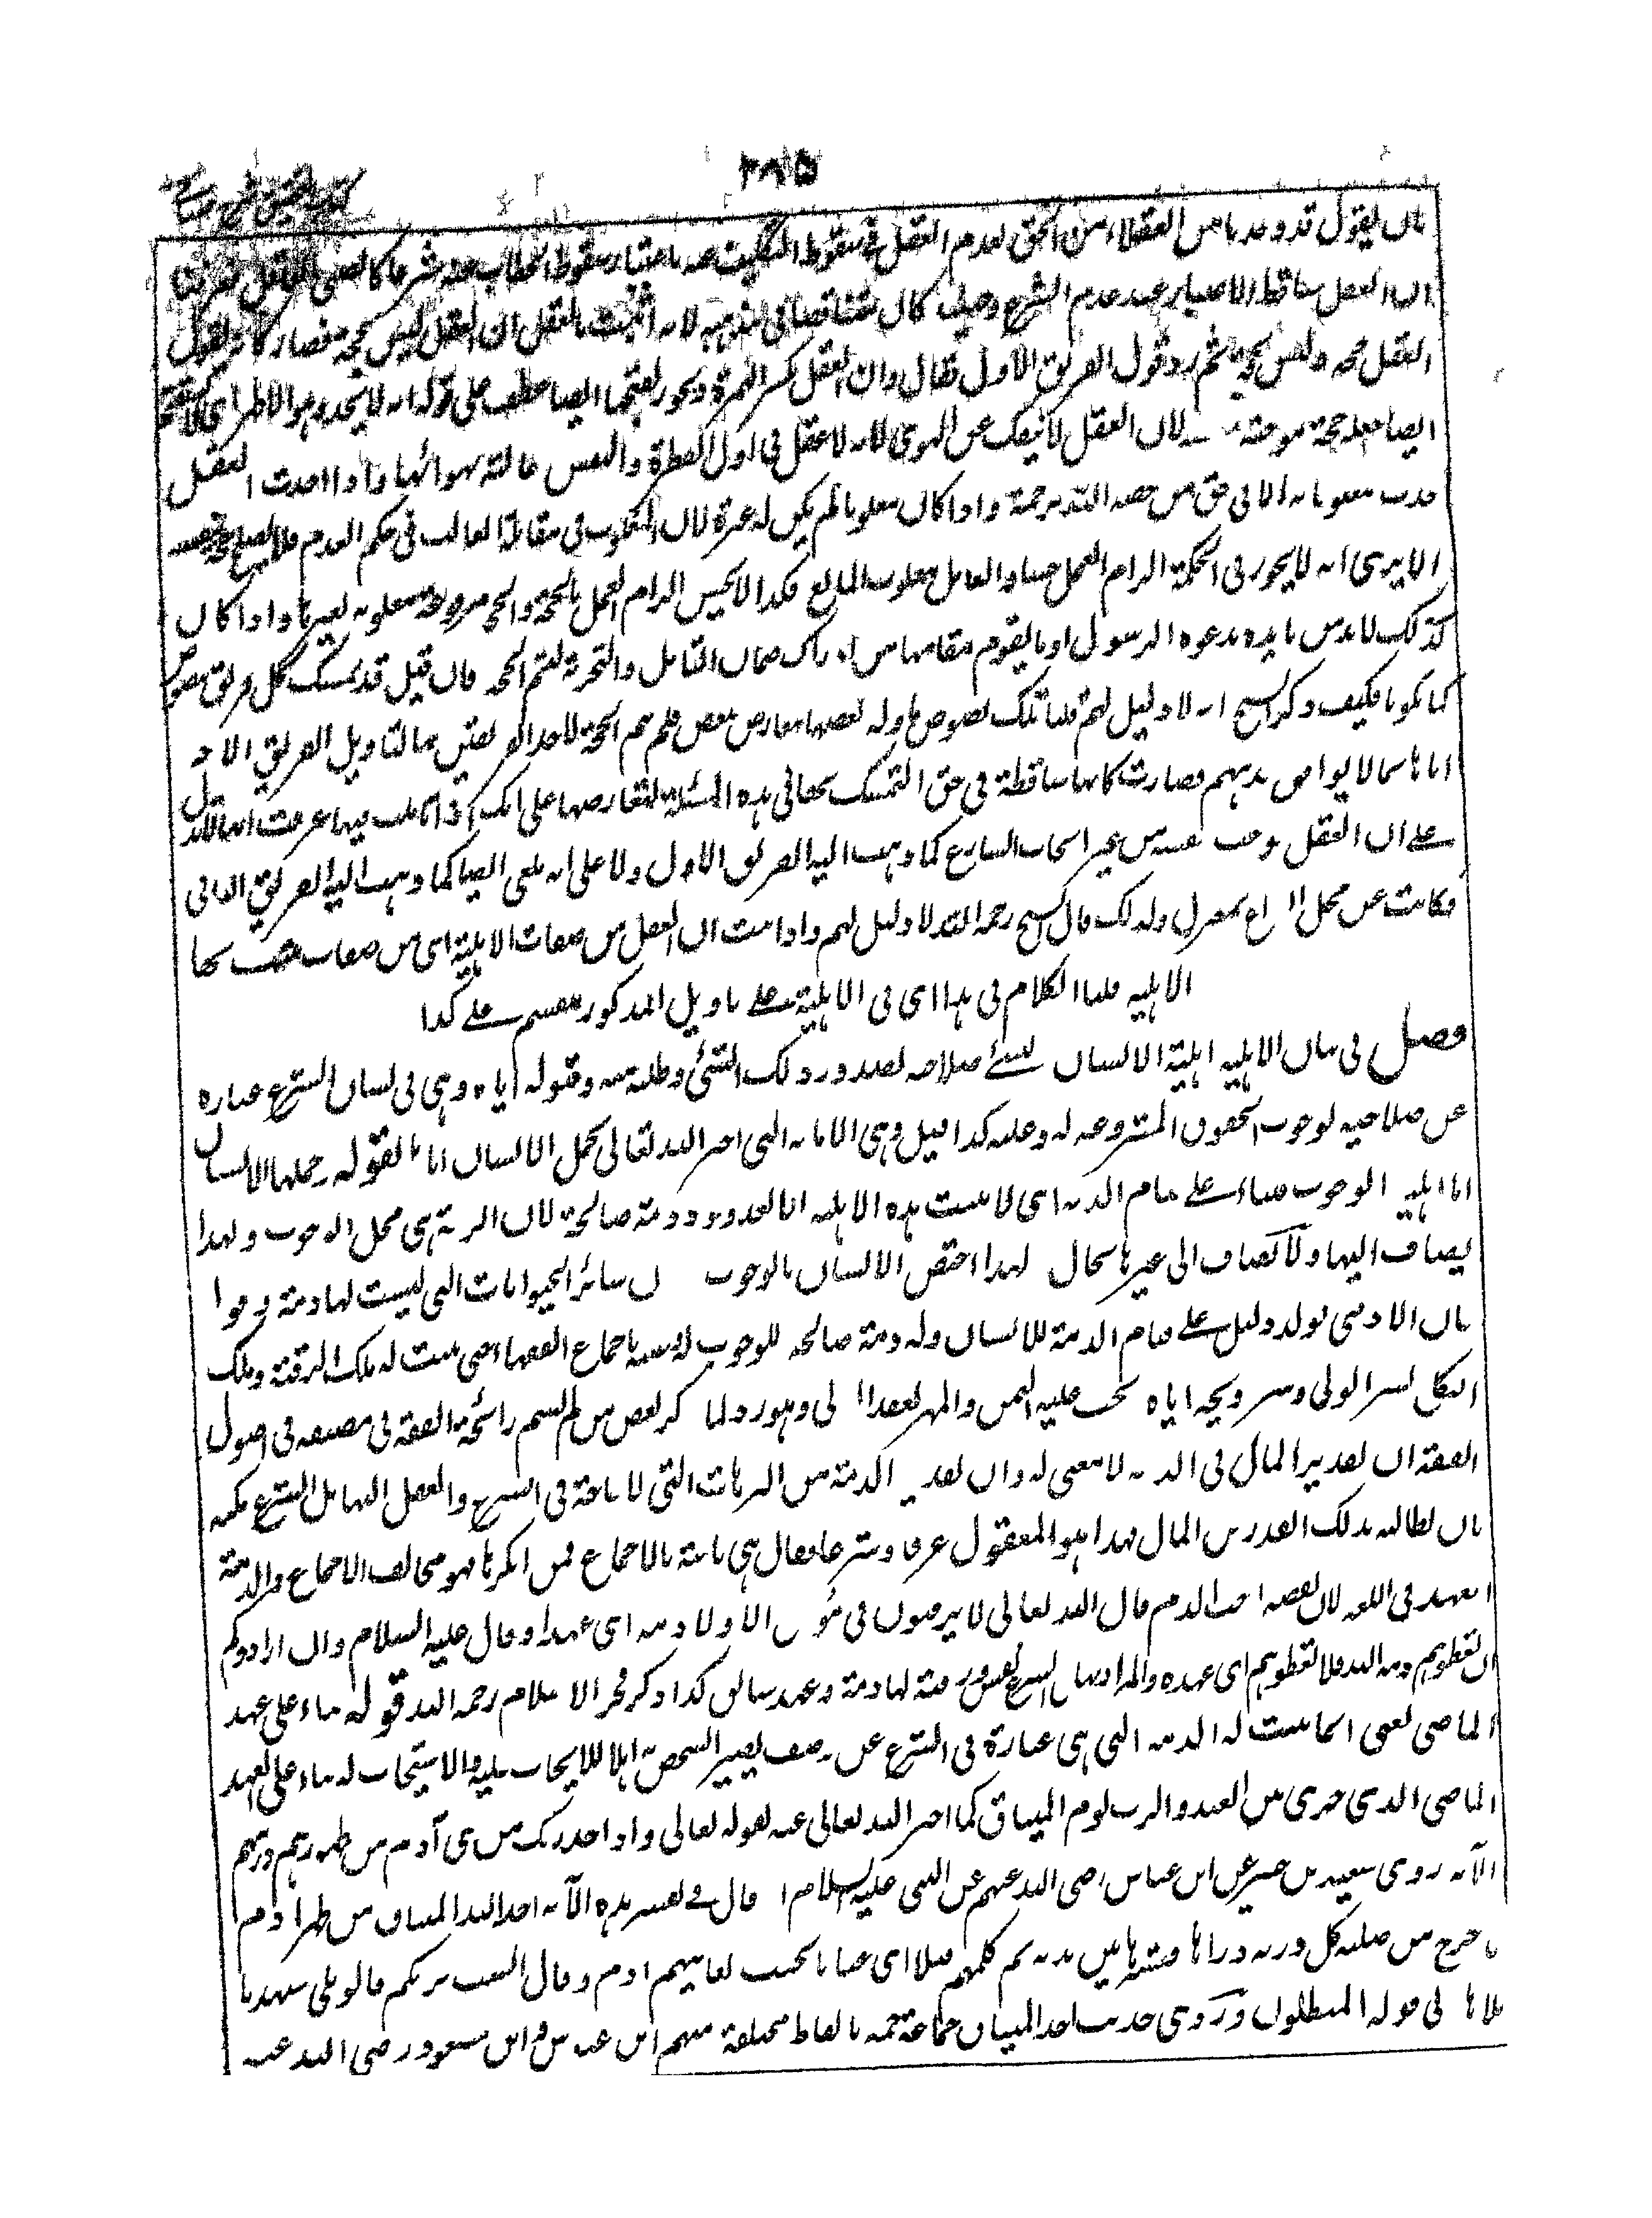 ٢٨٥
كتاب التحقيق شرح
بان يقول قد وجدنا من العقلاء من الحق بعدم العقل في سقوط التكليف عنه باعتبار سقوط الخطاب عنه شرعا كالصبي العاقل فعرفنا
ان العقل ساقط الاعتبار عند عدم الشرع وحينئذ كان متناقضا في مذهبه لانه اثبت بالعقل ان العقل ليس بحجة فصار كانه يقول
العقل حجة وليس بحجة ثم رد قول الفريق الاول فقال وان العقل بكسر الهمزة ويجوز بفتحها ايضا عطف على قوله انه لا يجد وهو الاظهر اي
ايضا جعله حجة موجبة لان العقل لا ينفك عن الهوى لانه لا عقل في اول الفطرة والنفس غالبة بهوائها واذا حدث العقل
حدث مغلوبا به الا في حق من خصه الله برحمة واذا كان مغلوبا لم يكن له عبرة لان المغلوب في مقابلة الغالب في حكم العدم فلا يصلح حجة بنفسه
الا يرى انه لا يجوز في الحكمة الزام العمل حسا والعامل مغلوب المانع فكذا لا يحسن الزام العمل بالحجة والحجة مغلوبة بغيرها واذا كان
كذلك لا بد من تأييده بدعوة الرسول او ما يقوم مقامها من ادراك زمان التأمل والتجربة لتتم الحجة فان قيل قد تمسك كل فريق بنصوص
كما تلونا فكيف ذكر الشيخ انه لا دليل لهم قلنا تلك نصوص ماولة بعضها معارض بعض فلم تتم الحجة لاحد الفريقين بها لتاويل الفريق الآخر
اياها بما لا يوافق مذهبهم فصارت كانها ساقطة في حق التمسك بها في هذه المسئلة لتعارضها على انك اذا تاملت فيها عرفت انها لا تدل
على ان العقل موجب بنفسه من غير ايجاب الشارع كما ذهب اليه الفريق الاول ولا على انه ملغى ايضا كما ذهب اليه الفريق الثاني
فكانت عن محل النزاع بمعزل ولذلك قال الشيخ رحمه الله لا دليل لهم واذا ثبت ان العقل من صفات الاهلية اي من صفات يثبت بها
الاهلية قلنا الكلام في هذا اي في الاهلية على تاويل المذكور ينقسم على كذا
فصل في بيان الاهلية اهلية الانسان للشئ صلاحيته لصدور ذلك الشئ وطلبه منه وقبوله اياه وهي في لسان الشرع عبارة
عن صلاحيته لوجوب الحقوق المشروعة له وعليه كذا قيل وهي الامانة التي اخبر الله تعالى بحمل الانسان اياها بقوله وحملها الانسان
اما اهلية الوجوب فبناء على قيام الذمة اي لا تثبت هذه الاهلية الا بعد وجود ذمة صالحة لان الذمة هي محل الوجوب ولهذا
يضاف اليها ولا يضاف الى غيرها بحال لهذا اختص الانسان بالوجوب من سائر الحيوانات التي ليست لها ذمة وقوله
بان الآدمي يولد دليل على قيام الذمة للانسان وله ذمة صالحة للوجوب له وعليه باجماع الفقهاء حتى يثبت له ملك الرقبة وملك
النكاح بشراء الولي وتزويجه اياه يجب عليه الثمن والمهر بعقد الولي وهو رد لما ذكر بعض من لم يشم رائحة الفقه في مصنفه في اصول
الفقه ان تقدير المال في الذمة لا معنى له وان تقدير الذمة من الترهات التي لا حاجة في الشرع والعقل اليها بل الشرع مكنه
بان يطالبه بذلك القدر من المال فهذا هو المعقول عرفا وشرعا فقال هي ثابتة بالاجماع فمن انكرها فهو مخالف الاجماع والذمة
العهد في اللغة لان نقضه يوجب الذم قال الله تعالى لا يرقبون في مؤمن الا ولا ذمة اي عهدا وقال عليه السلام وان ارادوكم
ان تعطوهم ذمة الله فلا تعطوهم اي عهده والمراد بها في الشرع نفس ورقبة لها ذمة وعهد سابق كذا ذكر فخر الاسلام رحمه الله قوله بناء على عهد
الماضي يعني انما ثبت له الذمة التي هي عبارة في الشرع عن وصف يصير الشخص به اهلا للايجاب عليه والاستيجاب له بناء على العهد
الماضي الذي جرى بين العبد والرب يوم الميثاق كما اخبر الله تعالى عنه بقوله تعالى واذ اخذ ربك من بني آدم من ظهورهم ذريتهم
الآية روى سعيد بن جبير عن ابن عباس رضي الله عنهم عن النبي عليه السلام انه قال في تفسير هذه الآية اخذ الله الميثاق من ظهر آدم
فاخرج من صلبه كل ذرية ذراها فنثرها بين يديه ثم كلمهم قبلا اي عيانا بحيث يعاينهم آدم وقال الست بربكم قالوا بلى شهدنا
تلاها الى قوله المبطلون وروى حديث اخذ الميثاق جماعة جمة بالفاظ مختلفة منهم ابن عباس وابن مسعود رضي الله عنه